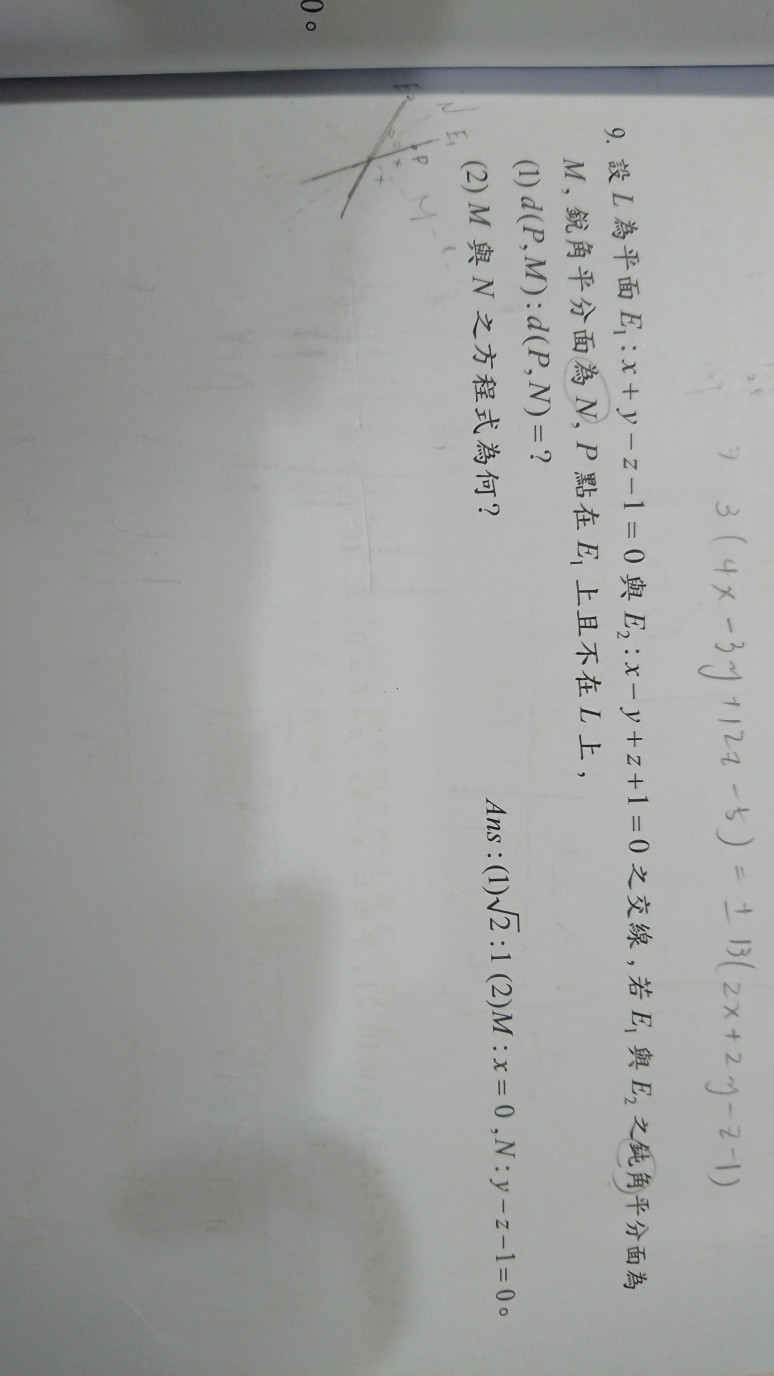 3(4x-3y+12z-5)=±13(2x+2y-z-1)
9. 設 L 為平面 E₁:x+y-z-1=0 與 E₂:x-y+z+1=0 之交線,若 E₁ 與 E₂ 之鈍角平分面為
M,銳角平分面為 N,P 點在 E₁ 上且不在 L 上,
(1) d(P,M):d(P,N)=?
(2) M 與 N 之方程式為何?
Ans:(1)√2:1 (2)M:x=0,N:y-z-1=0。
N E₁
P
M
E₂
0。